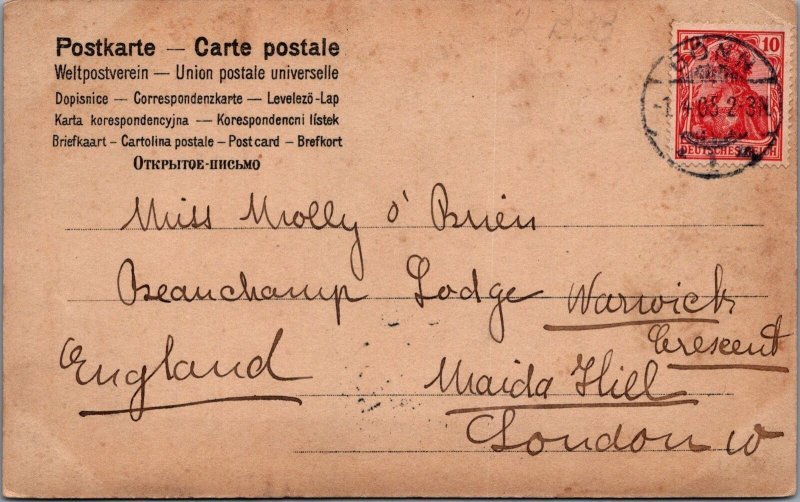 Postkarte — Carte postale
Weltpostverein — Union postale universelle
Dopisnice — Correspondenzkarte — Levelező-Lap
Karta korespondencyjna — Korespondencni lístek
Briefkaart — Cartolina postale — Post card — Brefkort
Открытое-письмо
10 10
DEUTSCHES REICH
BONN
Miss Molly O'Brien
Beauchamp Lodge Warwick
Crescent
England Maida Hill
London W